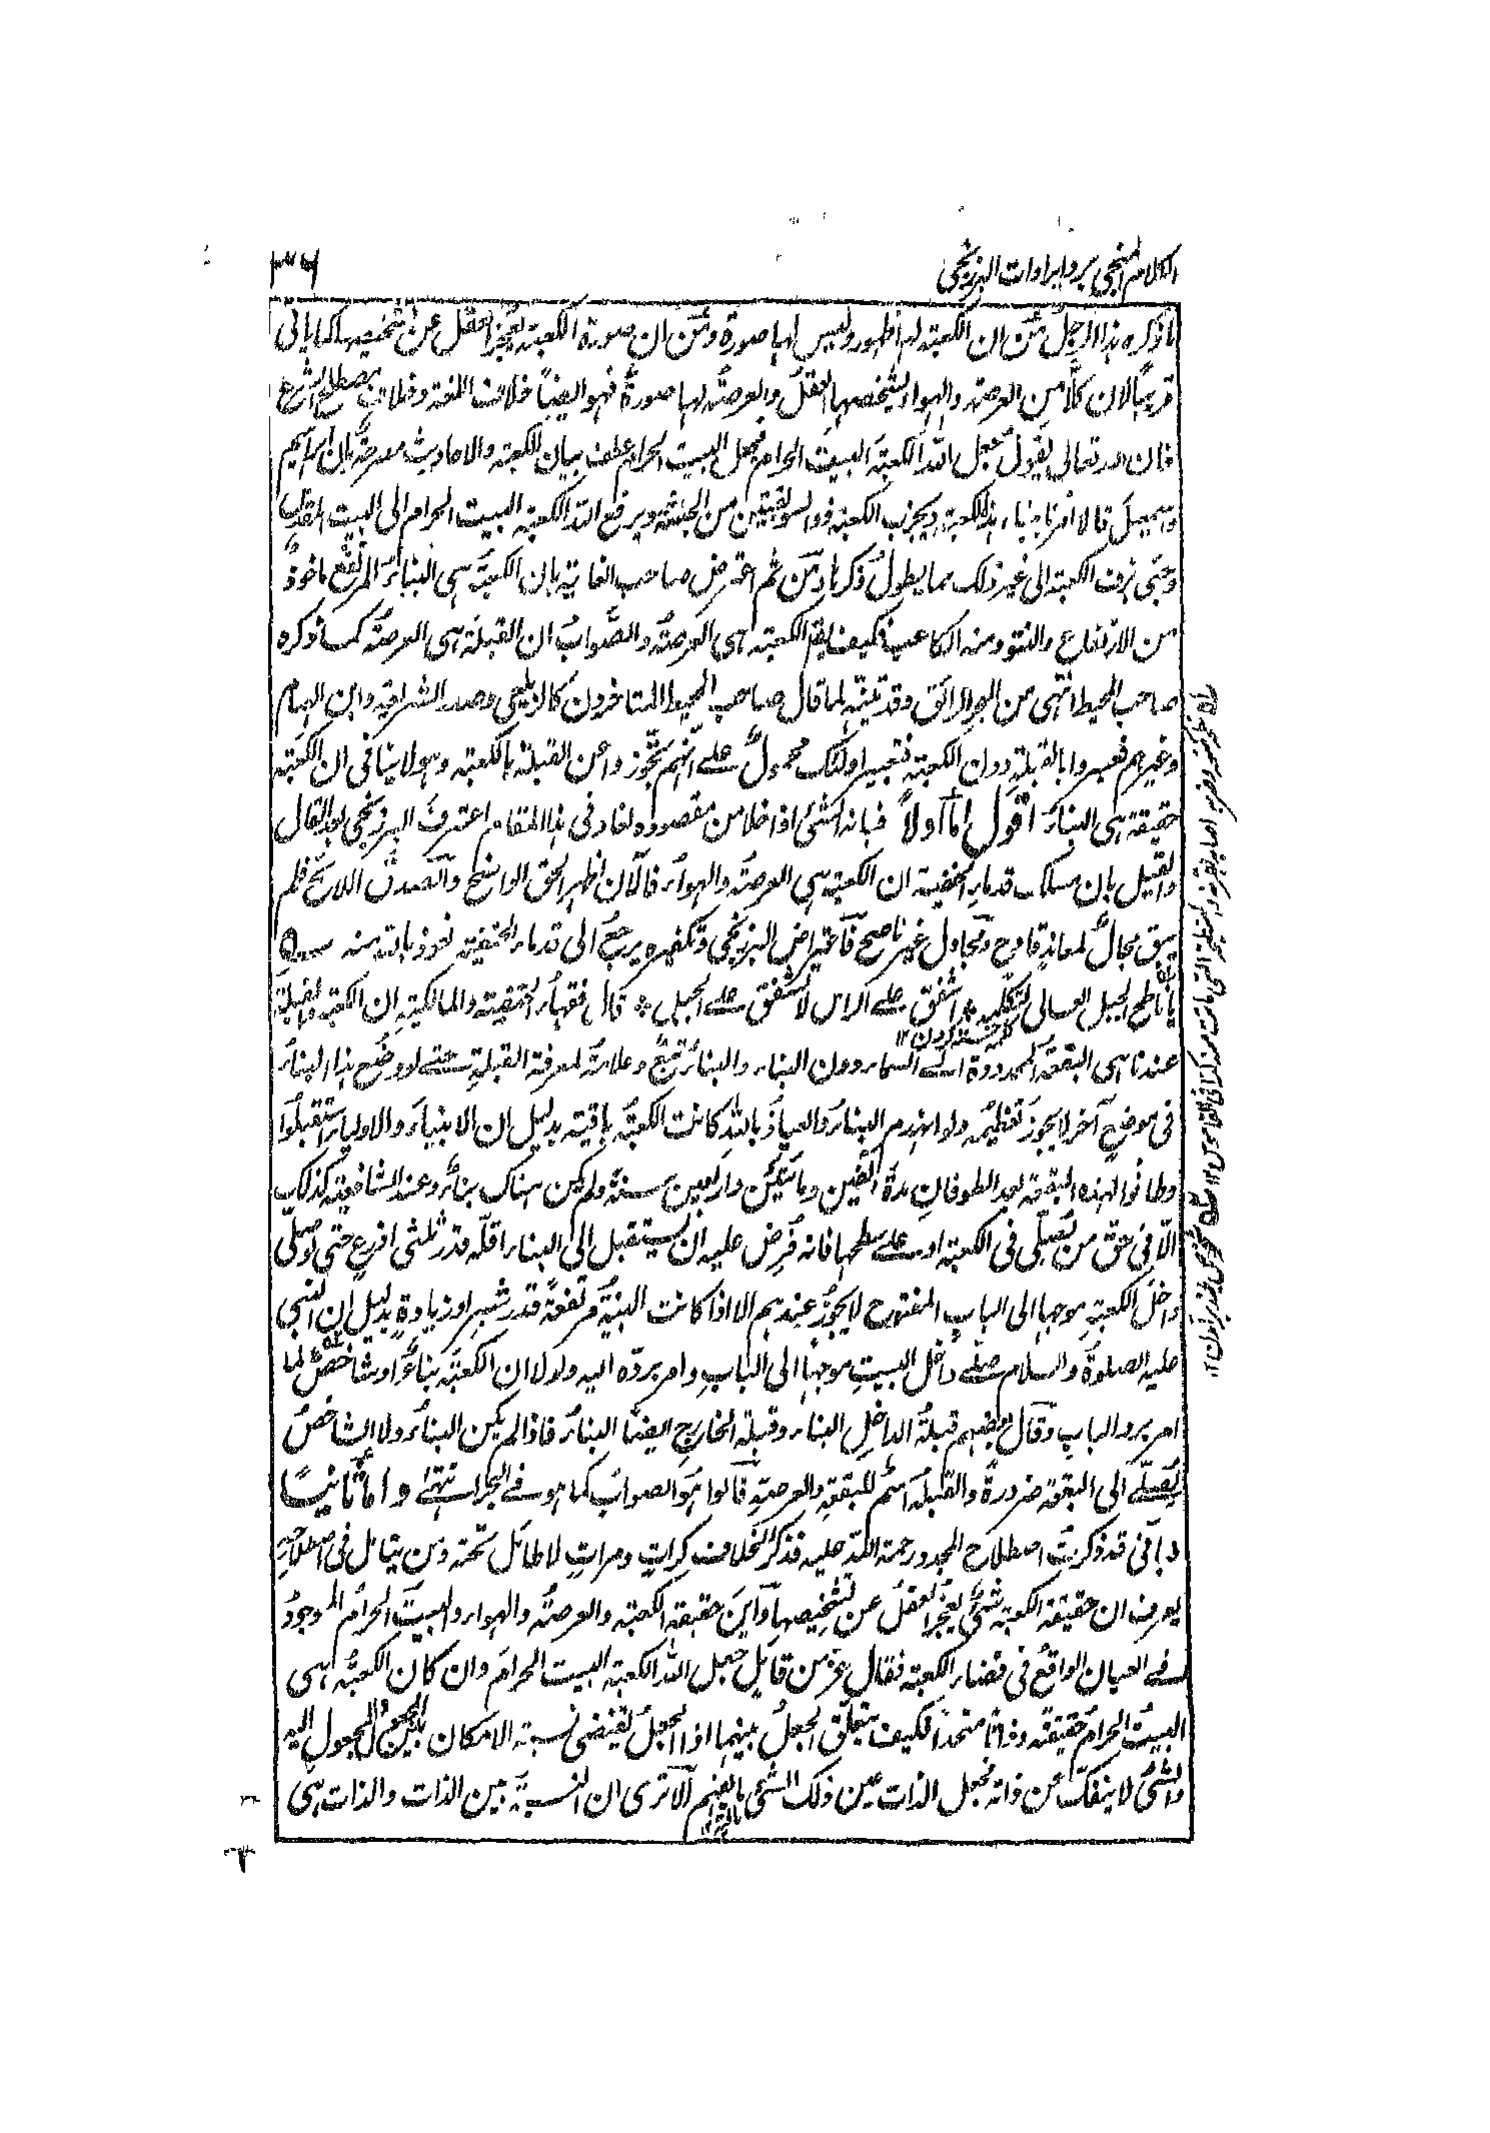 الكلام المنجى برد ايرادات البرزنجى
٣٦
ما ذكره هذا الرجل من ان الكعبة لها ظهور وليس لها صورة ومن ان صورة الكعبة يعجز العقل عن تشخيصها كما ياتى
قريبا لان كلا من العرصة والهواء يشخصها العقل والعرصة لها صورة فهو ايضا خلاف اللغة وخلاف مصطلح الشرع
فان الله تعالى يقول جعل الله الكعبة البيت الحرام فجعل البيت الحرام عطف بيان الكعبة والاحاديث مصرحة بان ابراهيم
واسمعيل قالا امرنا ببناء هذه الكعبة ويخرب الكعبة ذو السويقتين من الحبشة ويرفع الله الكعبة البيت الحرام الى البيت المقدس
وحتى تزف الكعبة الى غير ذلك مما يطول ذكرها ومن ثم اعترض صاحب الغاية بان الكعبة هى البناء المرتفع ماخوذ
من الارتفاع والنتو ومنه الكاعب فكيف يقم الكعبة هى العرصة والصواب ان القبلة هى العرصة كما ذكره
صاحب المحيط انتهى من البحر الرائق وقد تنبه لما قال صاحب المحيط المتاخرون كالزيلعى وصدر الشريعة وابن الهمام
وغيرهم فعبروا بالقبلة دون الكعبة فتعبير اولئك محمول على انهم تجوزوا عن القبلة بالكعبة وهو لا ينافى ان الكعبة
حقيقة هى البناء اقول اما اولا فبانه انشئ اذا خلا من مقصوده لغا وفى هذا المقام اعترف البرزنجى بعد القال
والقيل بان مسلك قدماء الحنفية ان الكعبة هى العرصة والهواء فالآن اظهر الحق الواضح والصدق اللائح فلم
يبق مجال لمعاند قادح ومجادل غير ناصح فاعتراض البرزنجى وتكفيره يرجع الى قدماء الحنفية نعوذ بالله منه
يا ناطح الجبل العالى لتكلمه ٭ اشفق على الراس لا تشفق على الجبل ٭ قال فقهاء الحنفية والمالكية ان الكعبة والقبلة
عندنا هى البقعة المحدودة الى السماء دون البناء والبناء تبع وعلامة لمعرفة القبلة حتى لو وضع هذا البناء
فى موضع آخر لا يجوز تعظيمه ولو انهدم البناء والعياذ بالله كانت الكعبة باقية بدليل ان الانبياء والاولياء استقبلوا
وطافوا لهذه البقعة بعد الطوفان مدة الفين ومائتين واربعين سنة ولم يكن هناك بناء وعند الشافعية كذلك
الا فى حق من يصلى فى الكعبة او على سطحها فانه فرض عليه ان يستقبل الى البناء اقله قدر ثلثى اذرع حتى لو صلى
داخل الكعبة موجها الى الباب المفتوح لا يجوز عندهم الا اذا كانت البنية مرتفعة قدر شبر او زيادة بدليل ان النبى
عليه الصلوة والسلام صلى داخل البيت موجها الى الباب وامر برده اليه ولولا ان الكعبة بناء او شاخص لما
امر برد الباب وقال بعضهم قبلة الداخل البناء وقبلة الخارج ايضا البناء فاذا لم يكن البناء ولا الشاخص
يصلى الى البقعة ضرورة والقبلة اسم للبقعة والعرصة قالوا هو الصواب كما هو فى البحر انتهى واما ثانيا
فبانى قد ذكرت اصطلاح المجدد رحمة الله عليه فذكر الخلاف كرات ومرات لا طائل تحته ومن يتامل فى اصطلاحه
يعرف ان حقيقة الكعبة شئ يعجز العقل عن تشخيصها واين حقيقة الكعبة والعرصة والهواء والبيت الحرام الموجود
فى العيان الواقع فى فضاء الكعبة فقال عز من قائل جعل الله الكعبة البيت الحرام وان كان الكعبة هى
البيت الحرام حقيقة وذاتا متحدا فكيف يتعلق الجعل بينهما اذا الجعل يقتضى نسبة الامكان بين المجعول والمجعول اليه
والشئ لا ينفك عن ذاته فجعل الذات عين ذلك الشئ الا ترى ان النسبة بين الذات والذات هى